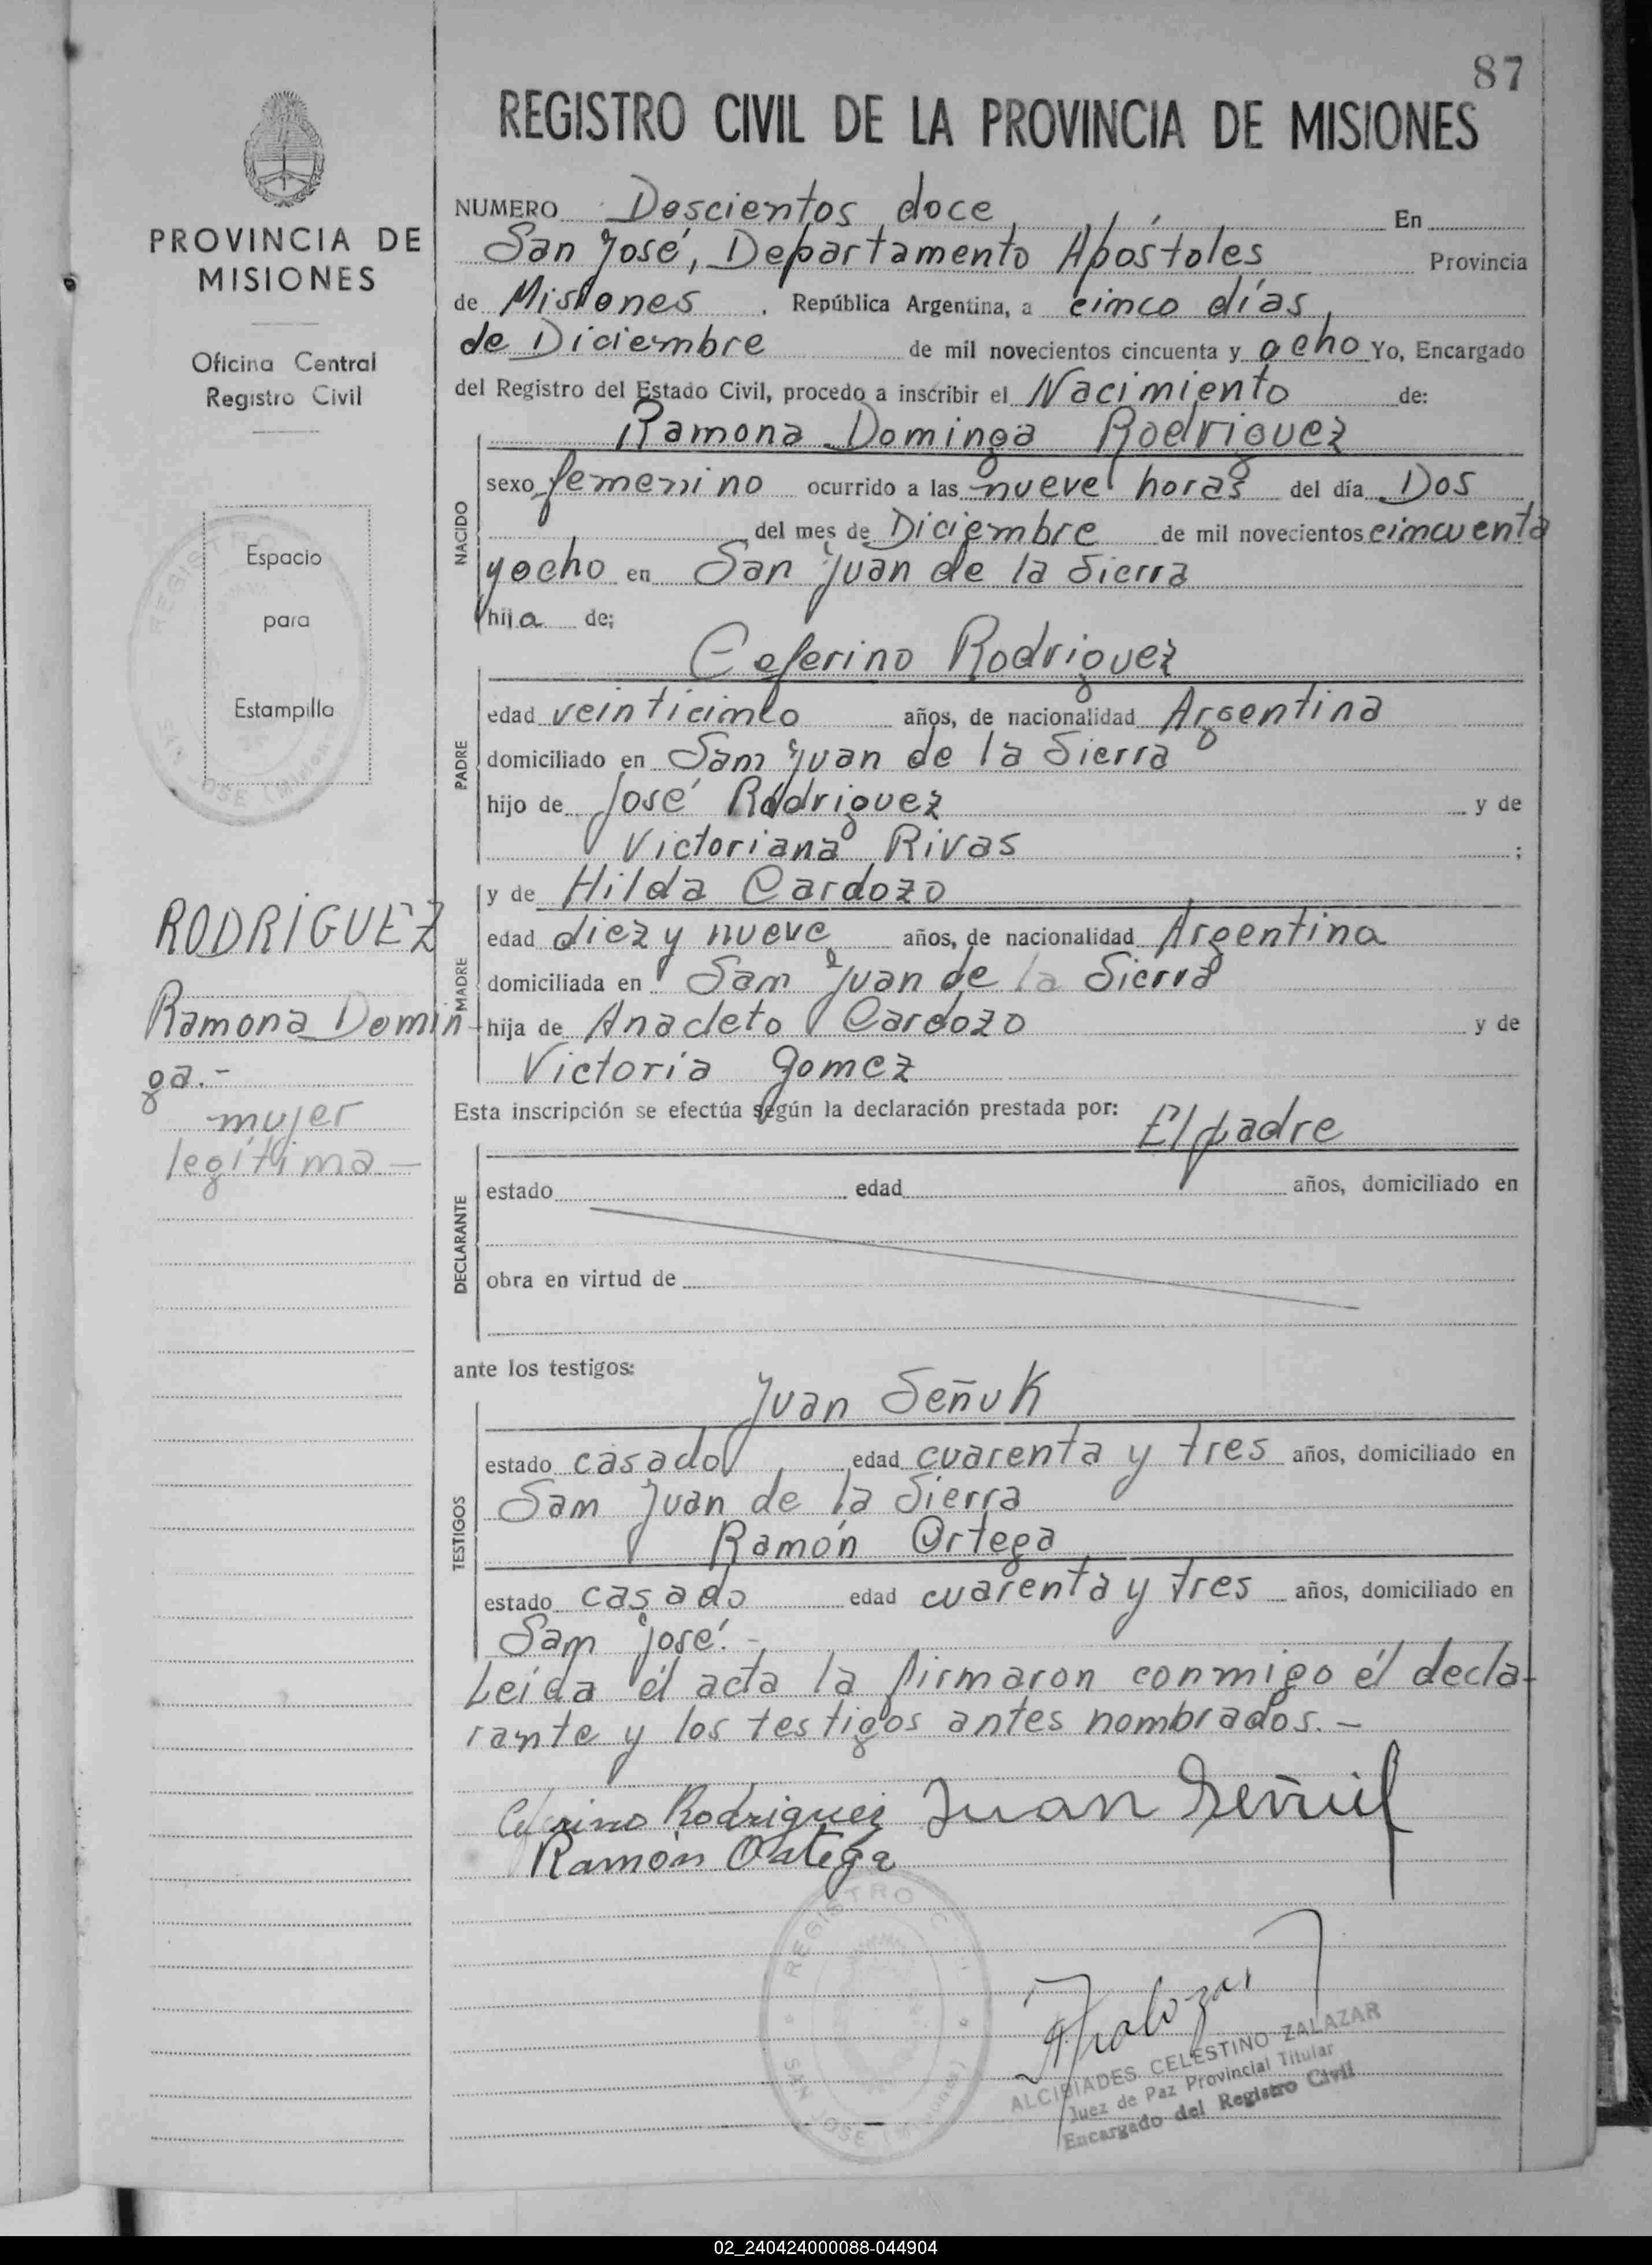 87
REGISTRO CIVIL DE LA PROVINCIA DE MISIONES
PROVINCIA DE
MISIONES
Oficina Central
Registro Civil
Espacio
para
Estampilla
REGISTRO
SAN JOSE (Misiones)
RODRÍGUEZ
Ramona Domin-
ga.-
mujer
legítima-
NUMERO Doscientos doce En
San José, Departamento Apóstoles Provincia
de Misiones . República Argentina, a cinco días
de Diciembre de mil novecientos cincuenta y ocho Yo, Encargado
del Registro del Estado Civil, procedo a inscribir el Nacimiento de:
NACIDO
Ramona Dominga Rodriguez
sexo femenino ocurrido a las nueve horas del día Dos
del mes de Diciembre de mil novecientos cimcuenta
y ocho en San Juan de la Sierra
hija de:
PADRE
Ceferino Rodriguez
edad veinticimco años, de nacionalidad Argentina
domiciliado en Sam Juan de la Sierra
hijo de José Rodriguez y de
Victoriana Rivas ;
MADRE
y de Hilda Cardozo
edad diez y nueve años, de nacionalidad Argentina
domiciliada en Sam Juan de la Sierra
hija de Anacleto Cardozo y de
Victoria Gomez
Esta inscripción se efectúa según la declaración prestada por: El padre
DECLARANTE
estado edad años, domiciliado en
obra en virtud de
ante los testigos:
TESTIGOS
Juan Señuk
estado casado edad cuarenta y tres años, domiciliado en
Sam Juan de la Sierra
Ramón Ortega
estado casado edad cuarenta y tres años, domiciliado en
Sam José.-
Leída él acta la firmaron conmigo él decla-
rante y los testigos antes nombrados.-
Ceferino Rodriguez Juan Señuk
Ramón Ortega
REGISTRO C
SAN JOSE (Misiones)
ALCIBIADES CELESTINO ZALAZAR
Juez de Paz Provincial Titular
Encargado del Registro Civil
02_240424000088-044904